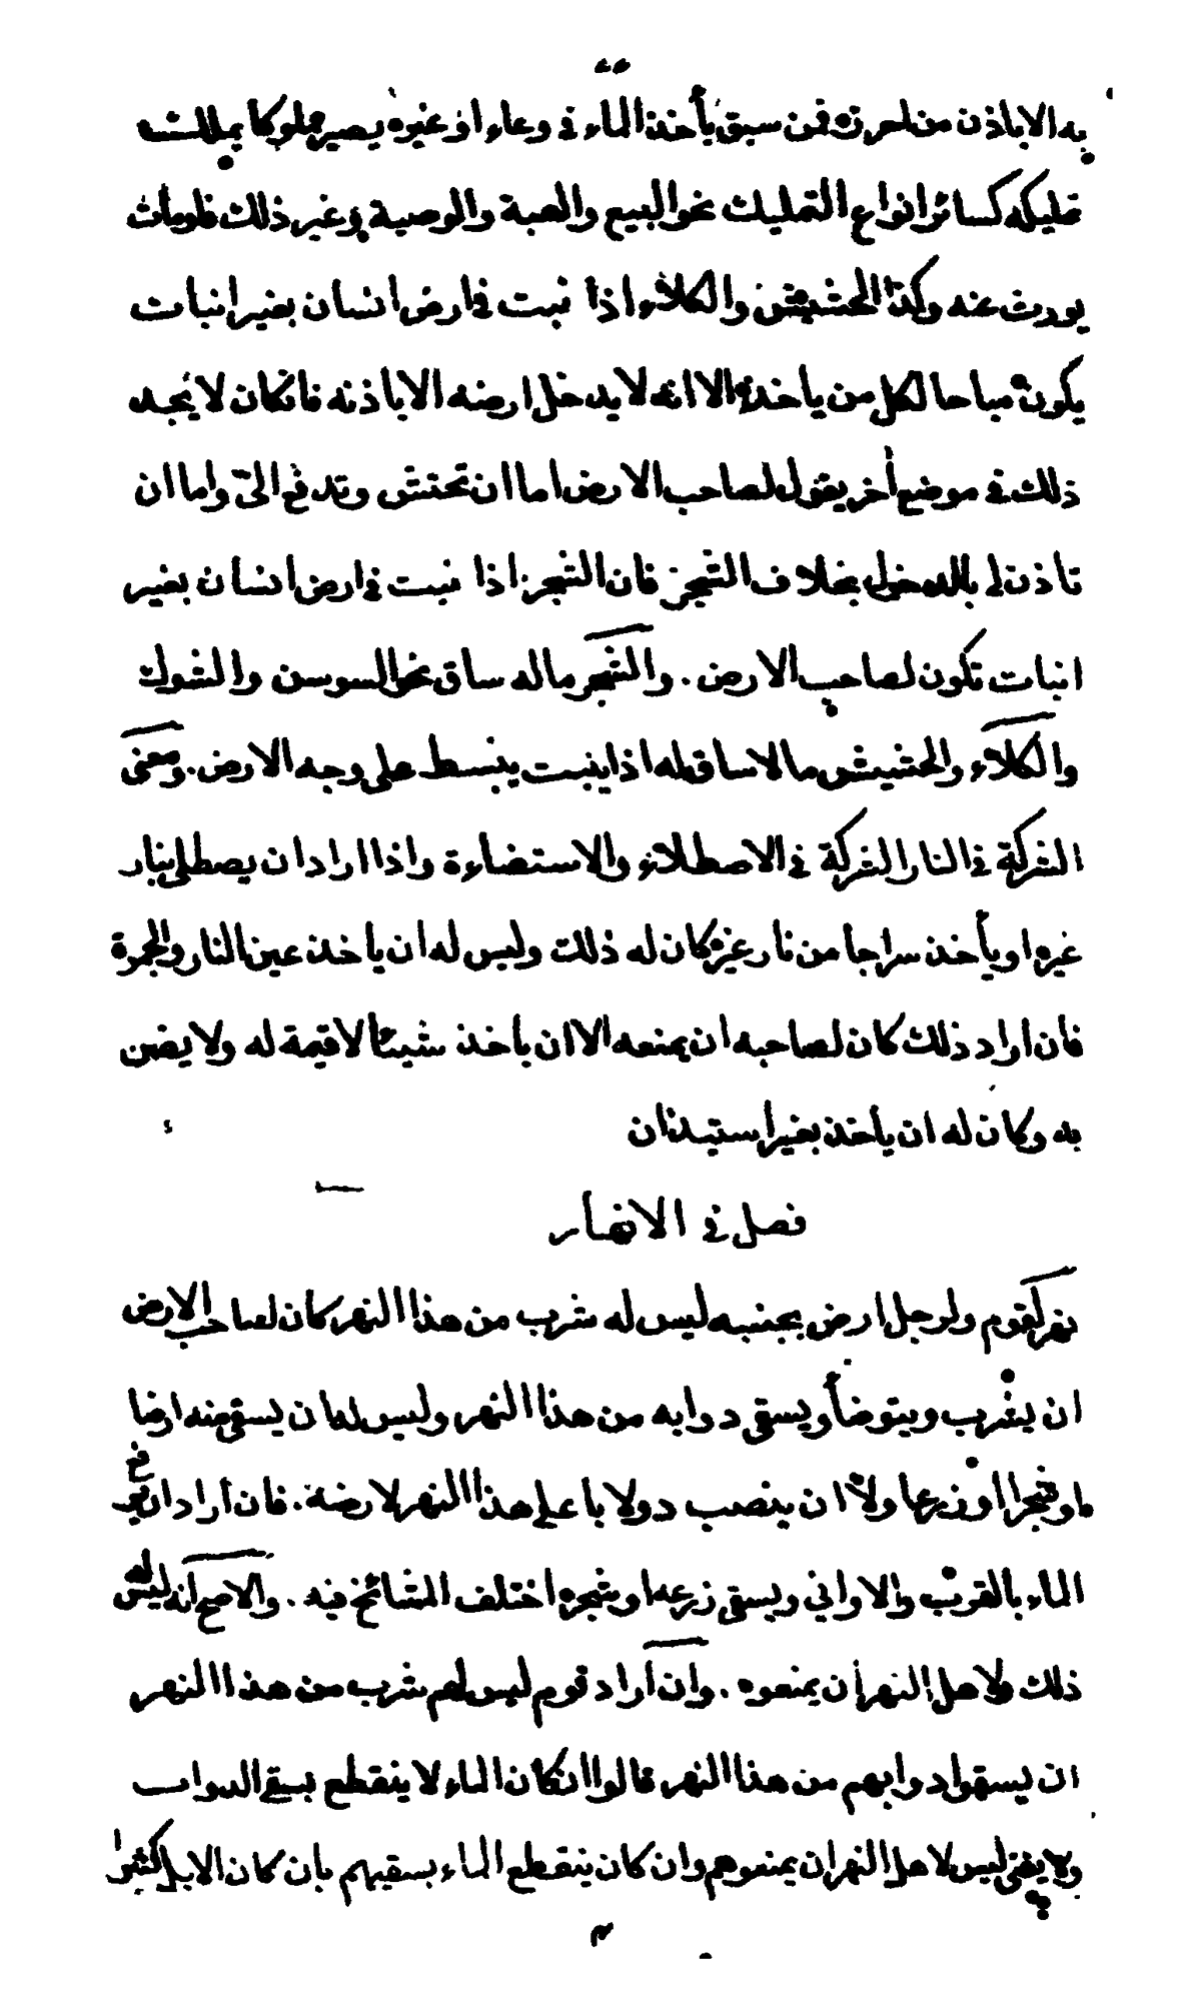 به الا باذن من احرزه فمن سبق بأخذ الماء في وعاء او غيره يصير مملوكا يملك
تمليكه كسائر انواع التمليك نحو البيع والهبة والوصية وغير ذلك فلومات
يورث عنه وكذا الحشيش والكلاء اذا نبت في ارض انسان بغير انبات
يكون مباحا لكل من يأخذه الا انه لا يدخل ارضه الا باذنه فانكان لا يجد
ذلك في موضع أخر يقول لصاحب الارض اما ان تحتش وتدفع الىّ واما ان
تاذن لى بالدخول بخلاف الشجر فان الشجر اذا نبت في ارض انسان بغير
انبات تكون لصاحب الارض . والشجر ماله ساق نحو السوسن والشوك
والكلاء والحشيش مالا ساق له اذا ينبت ينبسط على وجه الارض . ومعنى
الشركة في النار الشركة في الاصطلاء والاستضاءة واذا اراد ان يصطلى بنار
غيره او يأخذ سراجا من نار غيره كان له ذلك وليس له ان يأخذ عين النار والجمرة
فان اراد ذلك كان لصاحبه ان يمنعه الا ان يأخذ شيئا لا قيمة له ولا يضن
به وكان له ان يأخذ بغير استيذان
فصل في الانهار
نهر لقوم ولرجل ارض بجنبه ليس له شرب من هذا النهر كان لصاحب الارض
ان يشرب ويتوضأ ويسقى دوابه من هذا النهر وليس له ان يسقى منه ارضا
او شجرا او زرعا ولا ان ينصب دولابا على هذا النهر لارضه . فان اراد ان يرفع
الماء بالقرب والاواني ويسقى زرعه او شجره اختلف المشائخ فيه . والاصح انه ليس له
ذلك ولاهل النهر أن يمنعوه . وان اراد قوم ليس لهم شرب من هذا النهر
ان يسقوا دوابهم من هذا النهر قالوا ان كان الماء لا ينقطع بسقى الدواب
ولا يفنى ليس لاهل النهر ان يمنعوهم وان كان ينقطع الماء بسقيهم بان كان الابل كثيرا